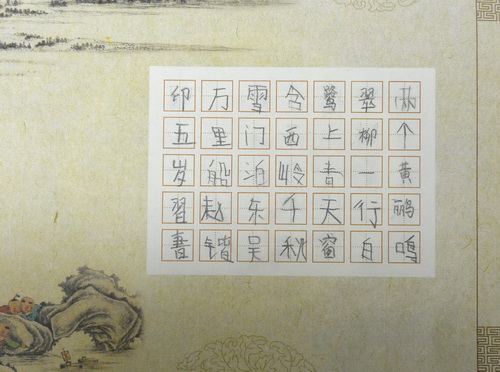 两个黄鹂鸣
翠柳一行白
鹭上青天窗
含西岭千秋
雪门泊东吴
万里船赵锴
卯五岁習書